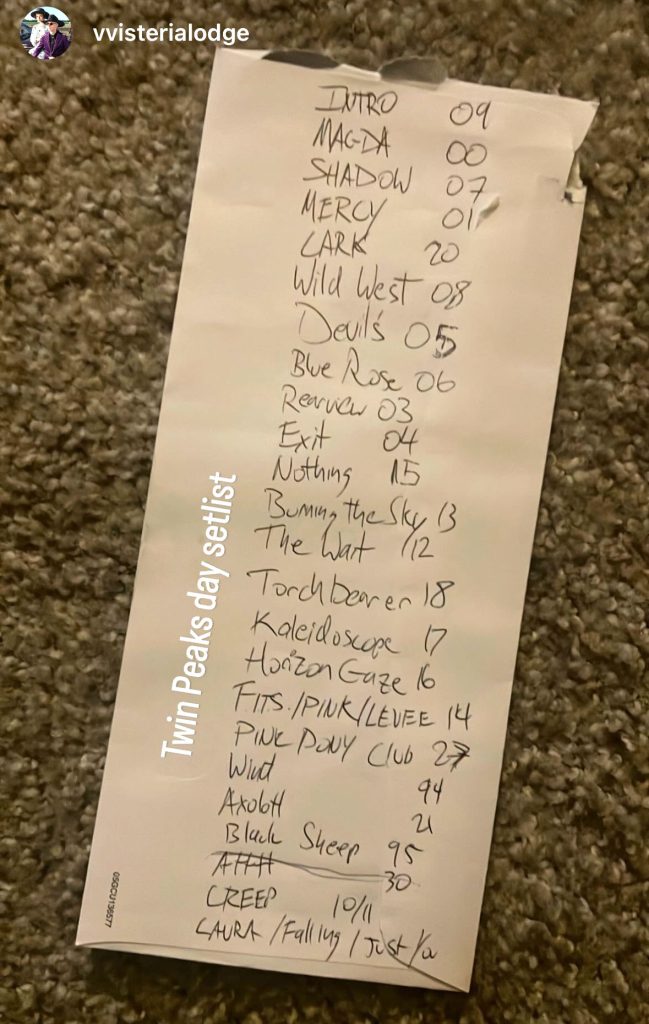 vvisterialodge
INTRO 09
MAGDA 00
SHADOW 07
MERCY 01
LARK 20
Wild West 08
Devil's 05
Blue Rose 06
Rearview 03
Exit 04
Nothing 15
Burning the Sky 13
The Wait 12
Torchbearer 18
Kaleidoscope 17
Horizon Gaze 16
FITS./PINK/LEVEE 14
PINK PONY Club 27
Wind 94
Axolotl 21
Black Sheep 95
30
CREEP 10/11
LAURA / Falling / Just You
Twin Peaks day setlist
05GCU136577